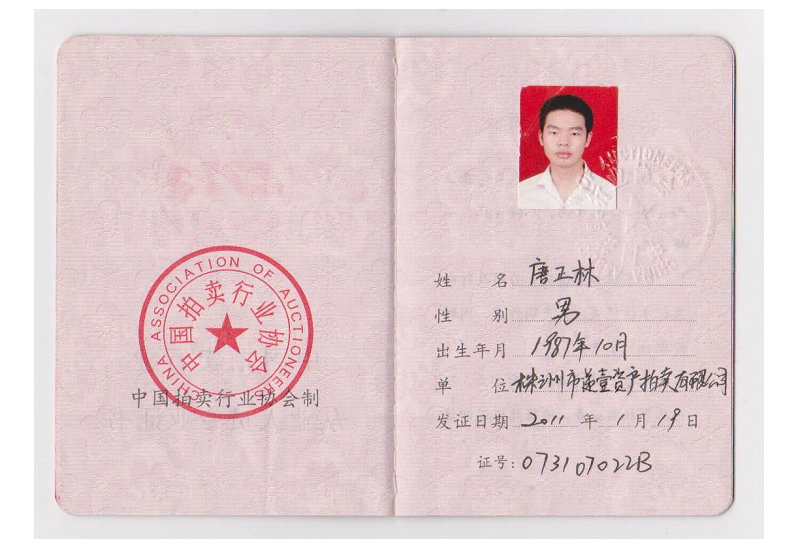 CHINA ASSOCIATION OF AUCTIONEERS
中国拍卖行业协会
中国拍卖行业协会制
AUCTIONEERS
姓 名 唐正林
性 别 男
出生年月 1987年10月
单 位 株洲市莲壹资产拍卖有限公司
发证日期 2011 年 1 月 19 日
证号: 073107022B